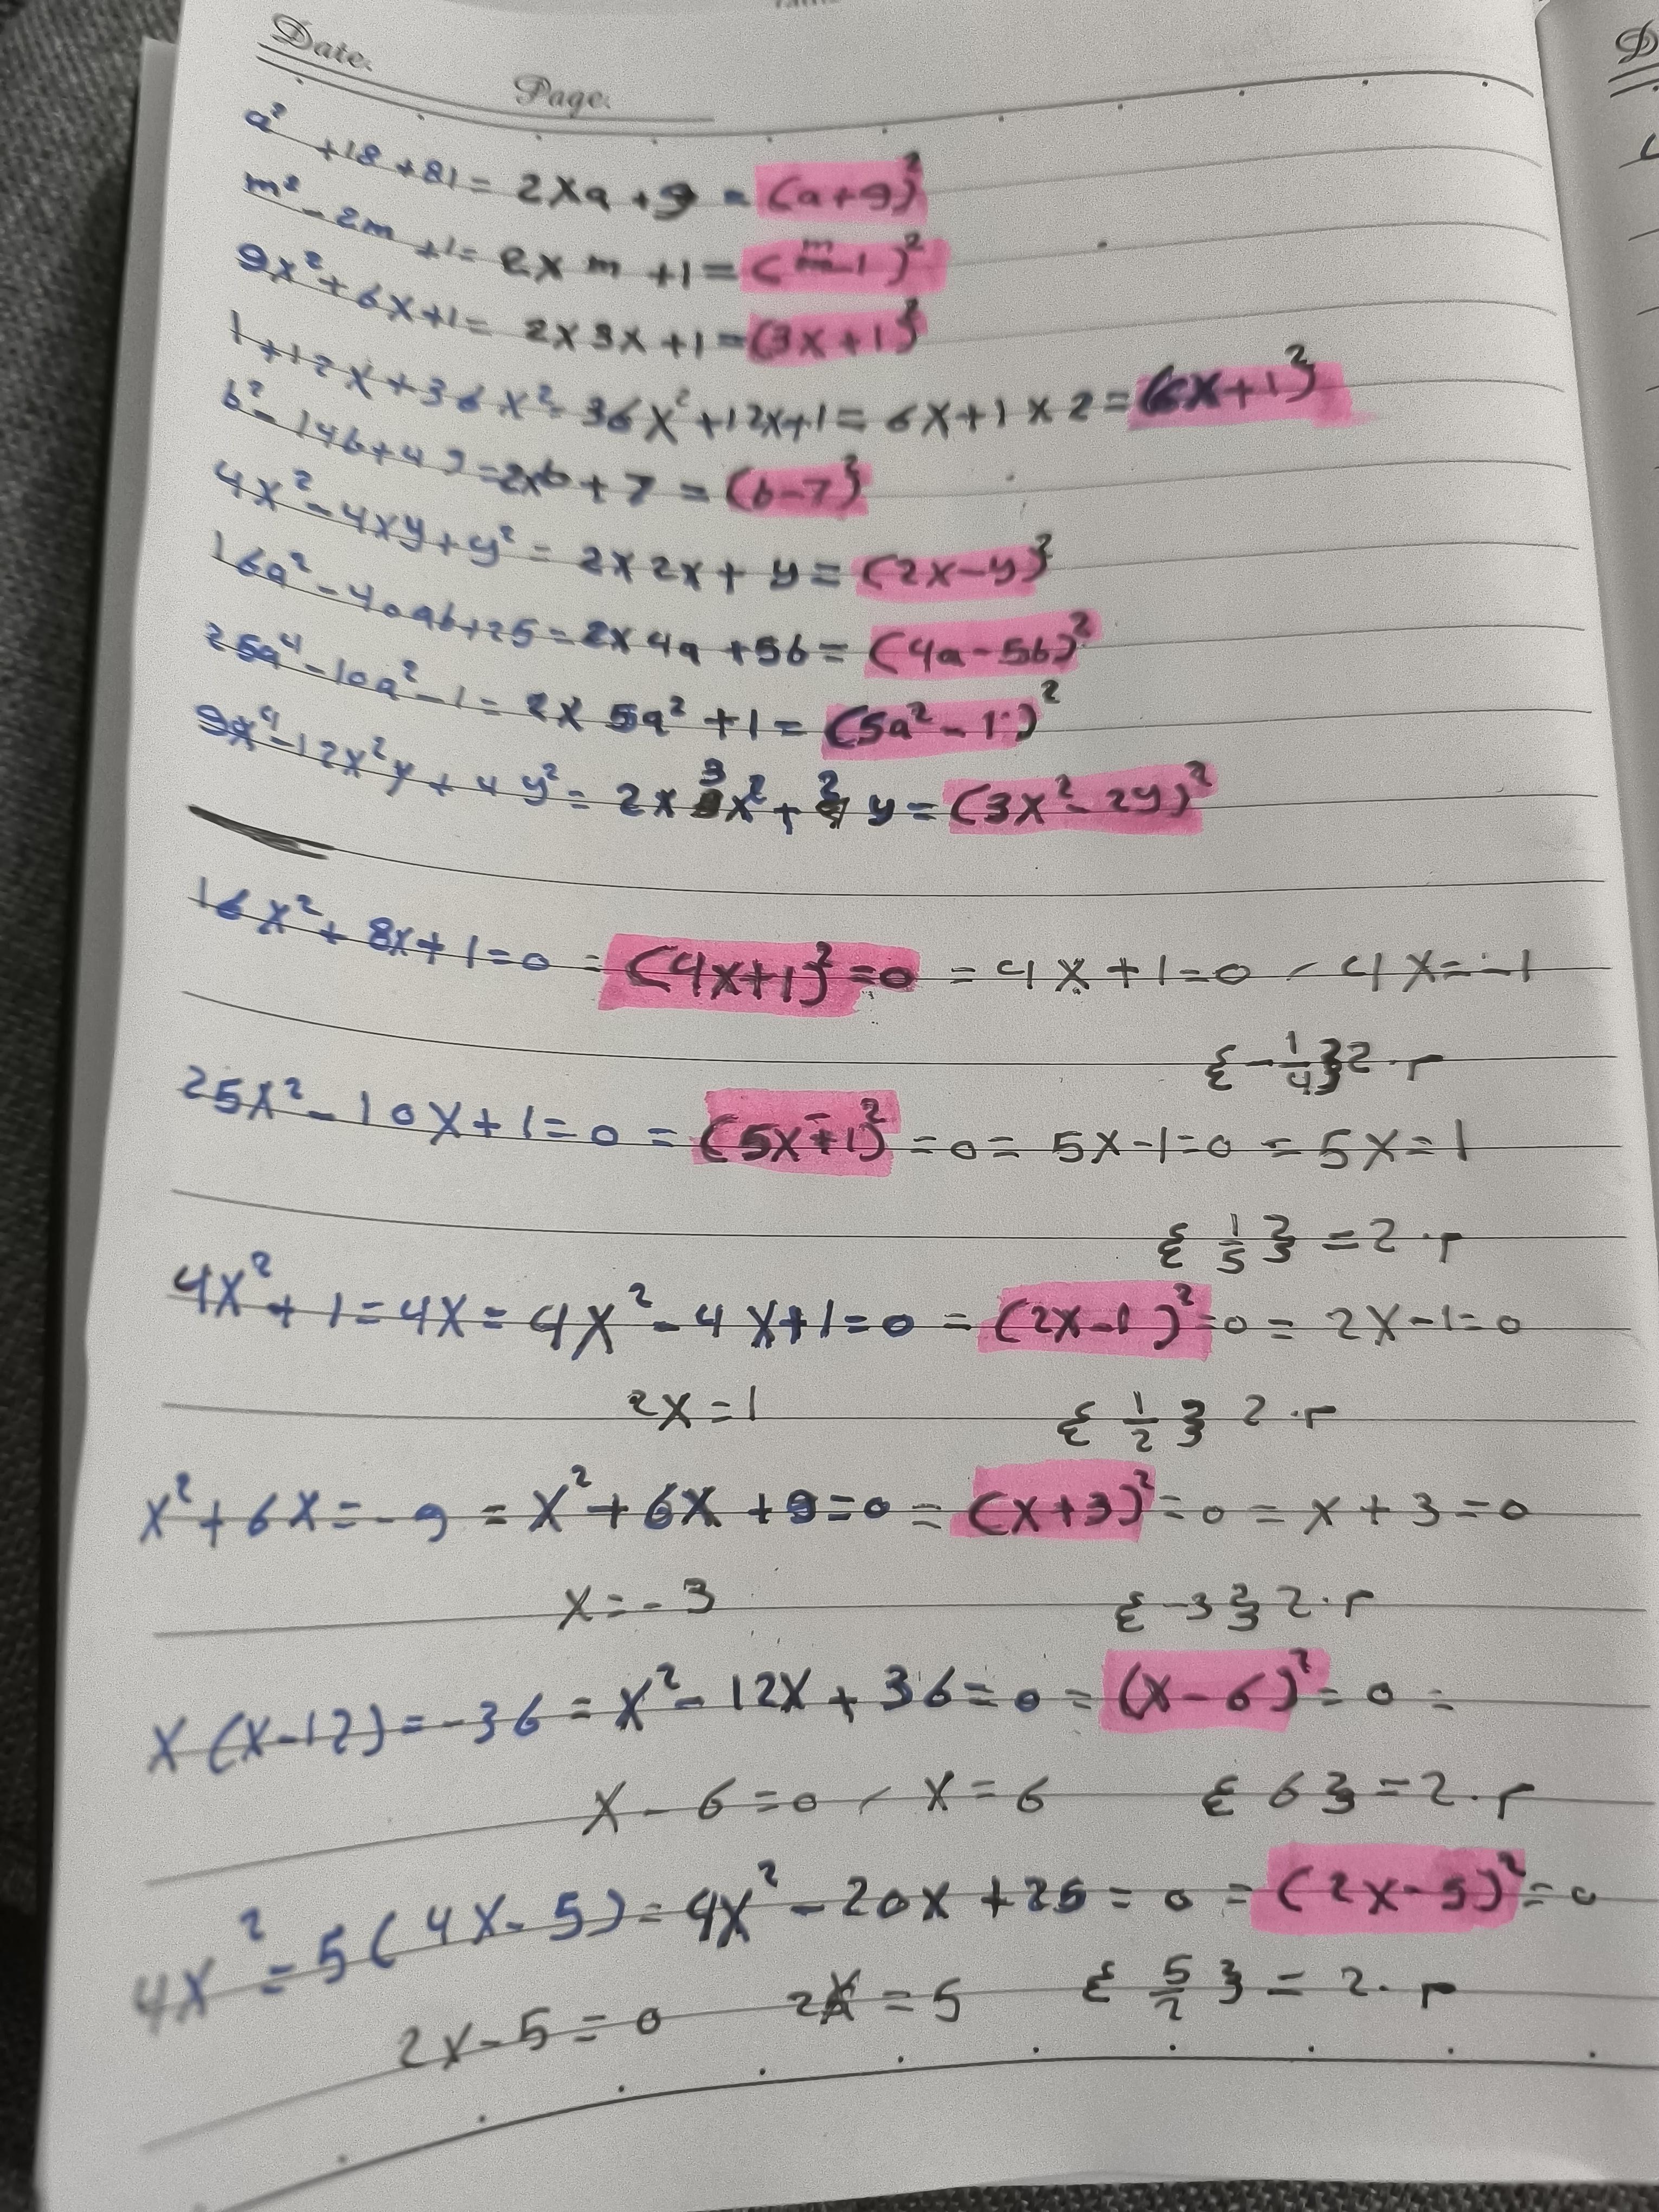 Date.
Page.
a² +18 +81 = 2xa +9 = (a+9)²
m² - 2m +1 = 2x m +1 = (m-1)²
9x² + 6x+1 = 2x3x+1 = (3x+1)²
1+12x+36x² = 36x²+12x+1 = 6x+1 x 2 = (6x+1)²
b² - 14b+49 = 2xb + 7 = (b-7)²
4x² - 4xy + y² = 2x2x + y = (2x-y)²
16a² - 40ab+25 = 2x4a +5b = (4a-5b)²
25a⁴ - 10a² - 1 = 2x 5a² + 1 = (5a² - 1)²
9x⁴ - 12x²y + 4y² = 2x 3x² + 2y = (3x² - 2y)²
16x² + 8x + 1 = 0 = (4x+1)² = 0 = 4x + 1 = 0 / 4x = -1
{-1/4} 2.r
25x² - 10x + 1 = 0 = (5x-1)² = 0 = 5x-1=0 = 5x = 1
{1/5} = 2.r
4x² + 1 = 4x = 4x² - 4x+1=0 = (2x-1)² = 0 = 2x-1=0
2x = 1 {1/2} 2.r
x² + 6x = -9 = x² + 6x + 9 = 0 = (x+3)² = 0 = x + 3 = 0
x = -3 {-3} 2.r
x(x-12) = -36 = x² - 12x + 36 = 0 = (x-6)² = 0 =
x - 6 = 0 / x = 6 {6} = 2.r
4x² = 5(4x-5) = 4x² - 20x + 25 = 0 = (2x-5)² = 0
2x-5 = 0 2x = 5 {5/2} = 2.r